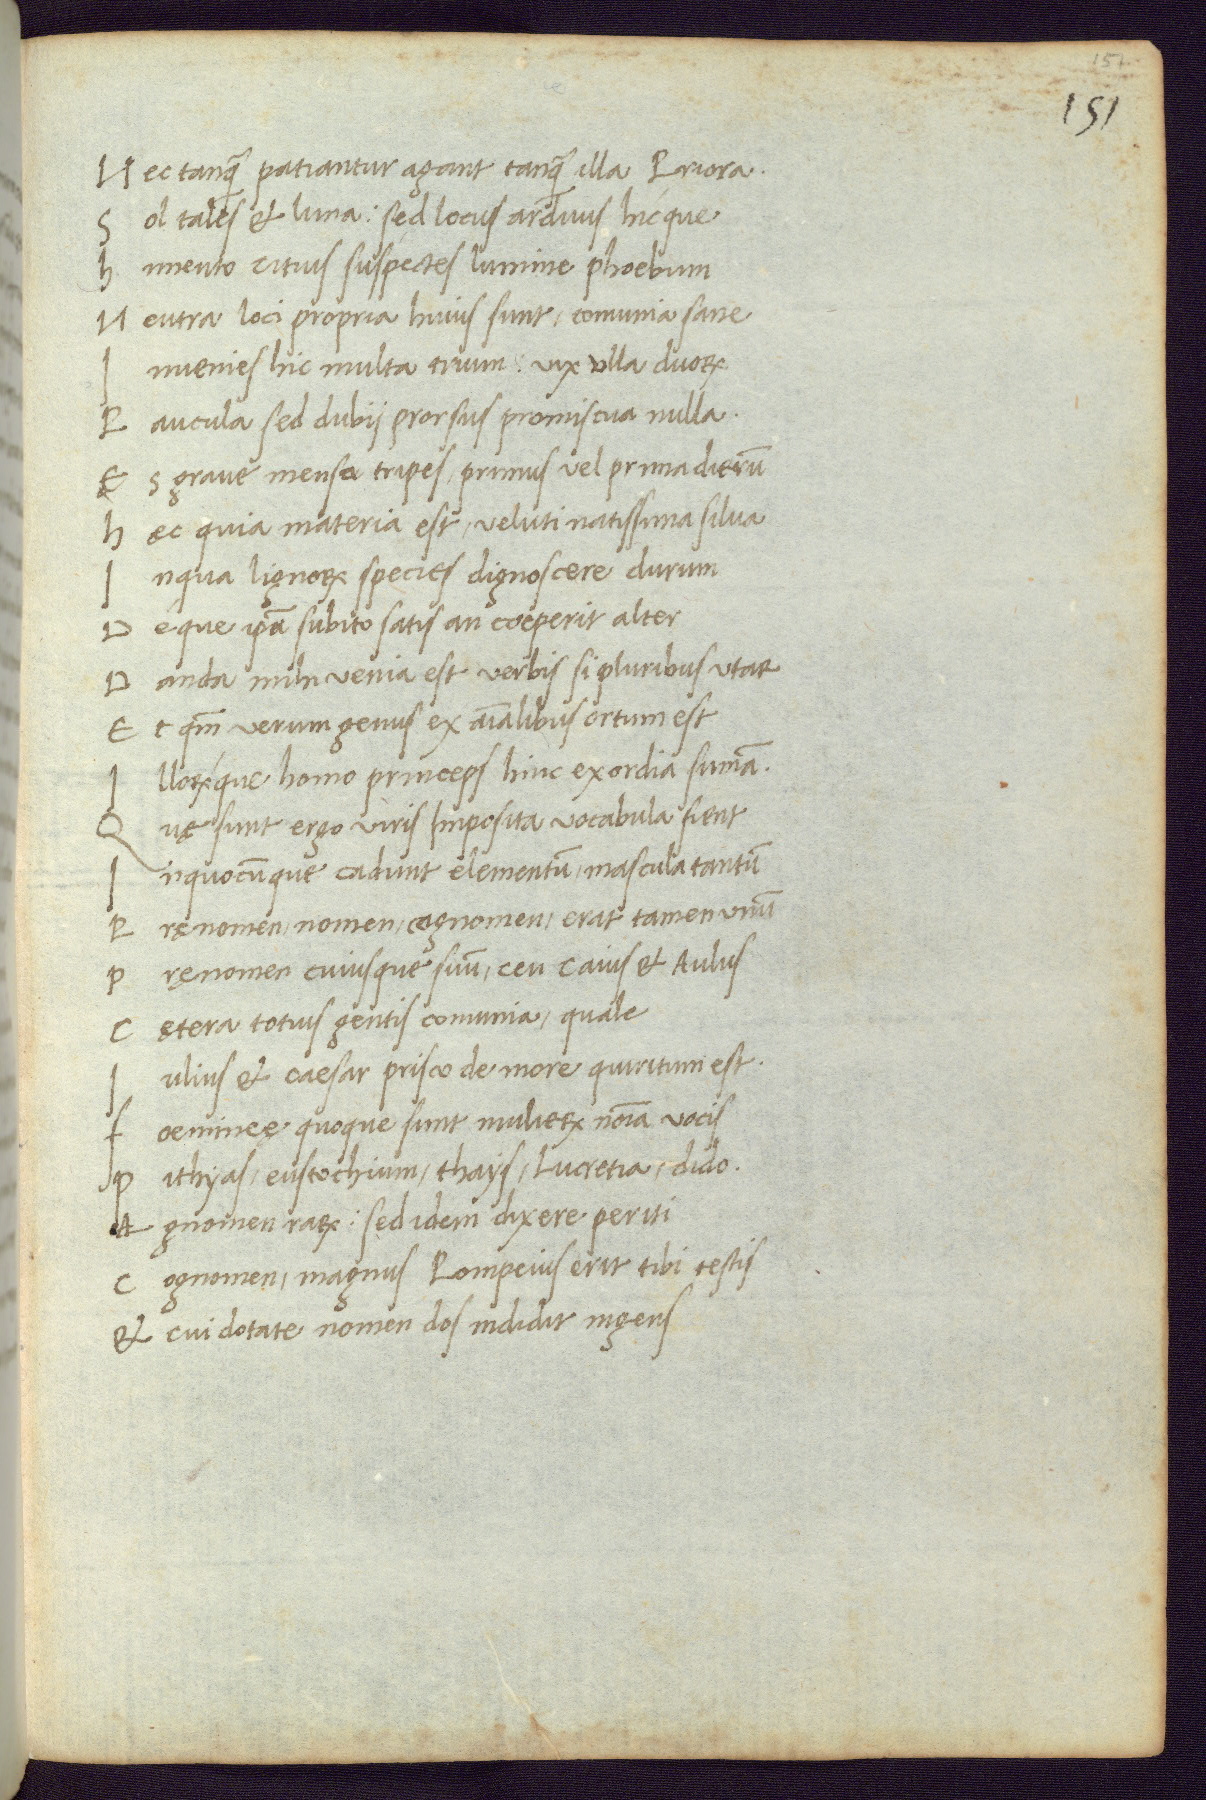 151
151
Nec tanq̃ patiantur agant tanq̃ illa Priora.
Sol tales & luna: sed locus arduus hicque
himento citius suspectes lumine phoebum
Neutra loci propria huius sunt, comunia sane
Inuenies hic multa trium: vix vlla duoꝝ
Paucula sed dubij prorsus promiscua nulla.
Es graue mensa tripes, primus vel prima dierũ
hęc quia materia est, veluti natissima silua
Inqua lignoꝝ species dignoscere durum
Deque ip̃a subito satis an coeperit alter
Danda mihi venia est verbis si pluribus vtar
Et qm̃ verum genus ex aĩalibus ortum est
Illoꝝque homo princeps hinc exordia sumã.
Quę sunt ergo viris Imposita vocabula fient
Inquocũque cadunt elementũ, mascula tantũ
Pręnomen, nomen, cognomen, erat tamen vnũ
Pręnomen cuiusque suũ, ceu Caius & Aulus
Cętera totius gentis comunia, quale
Iulius & caesar prisco de more quiritum est.
foemineę quoque sunt mulieꝝ noĩa vocis
Pithyas, eustochium, thays, Lucretia, dido.
Agnomen raꝝ: sed idem dixere periti
Cognomen, magnus Pompeius erit tibi testis
& cui dotate nomen dos indidit ingens